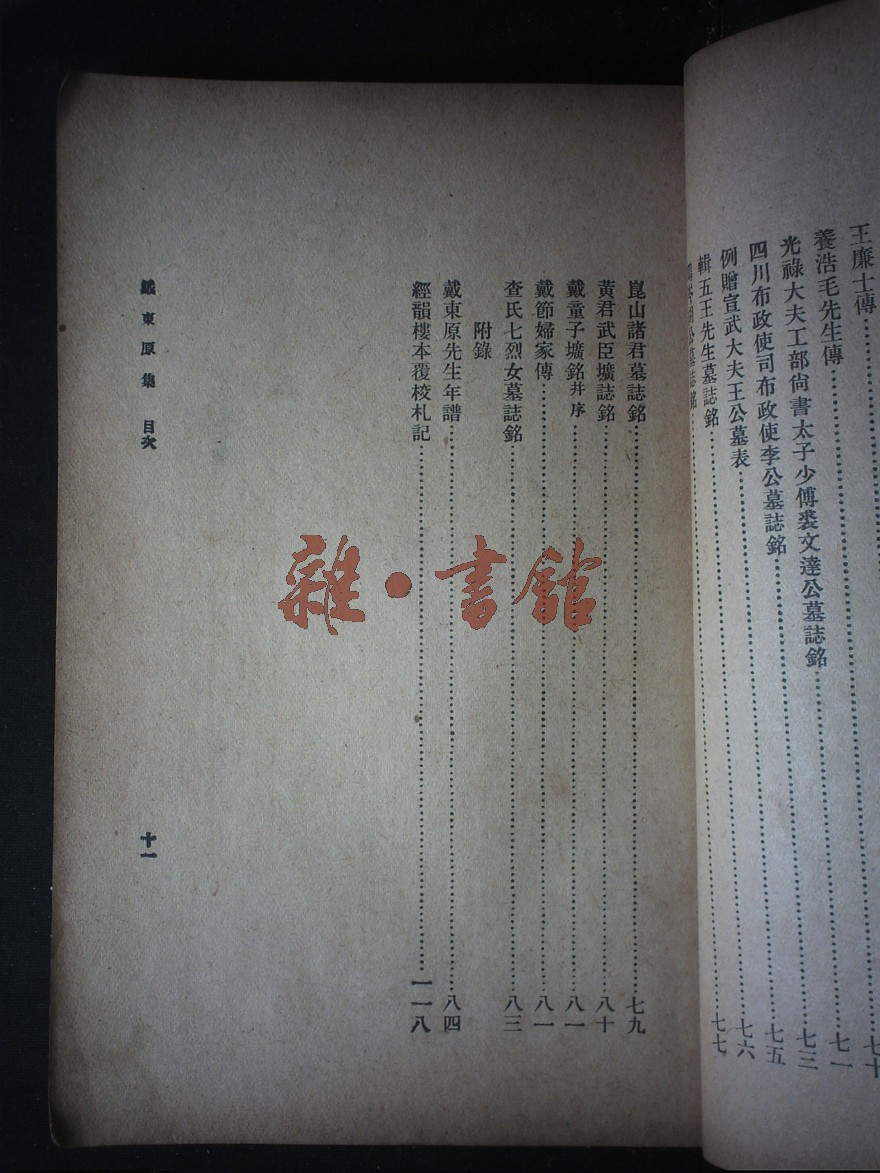 王廉士傳……七十
養浩毛先生傳……七一
光祿大夫工部尙書太子少傅裘文達公墓誌銘……七三
四川布政使司布政使李公墓誌銘……七五
例贈宣武大夫王公墓表……七六
輯五王先生墓誌銘……七七
公墓誌銘……
崑山諸君墓誌銘……七九
黃君武臣壙誌銘……八十
戴童子壙銘并序……八一
戴節婦家傳……八一
查氏七烈女墓誌銘……八三
附錄
戴東原先生年譜……八四
經韻樓本覆校札記……一一八
戴東原集 目次
十一
雜·書館